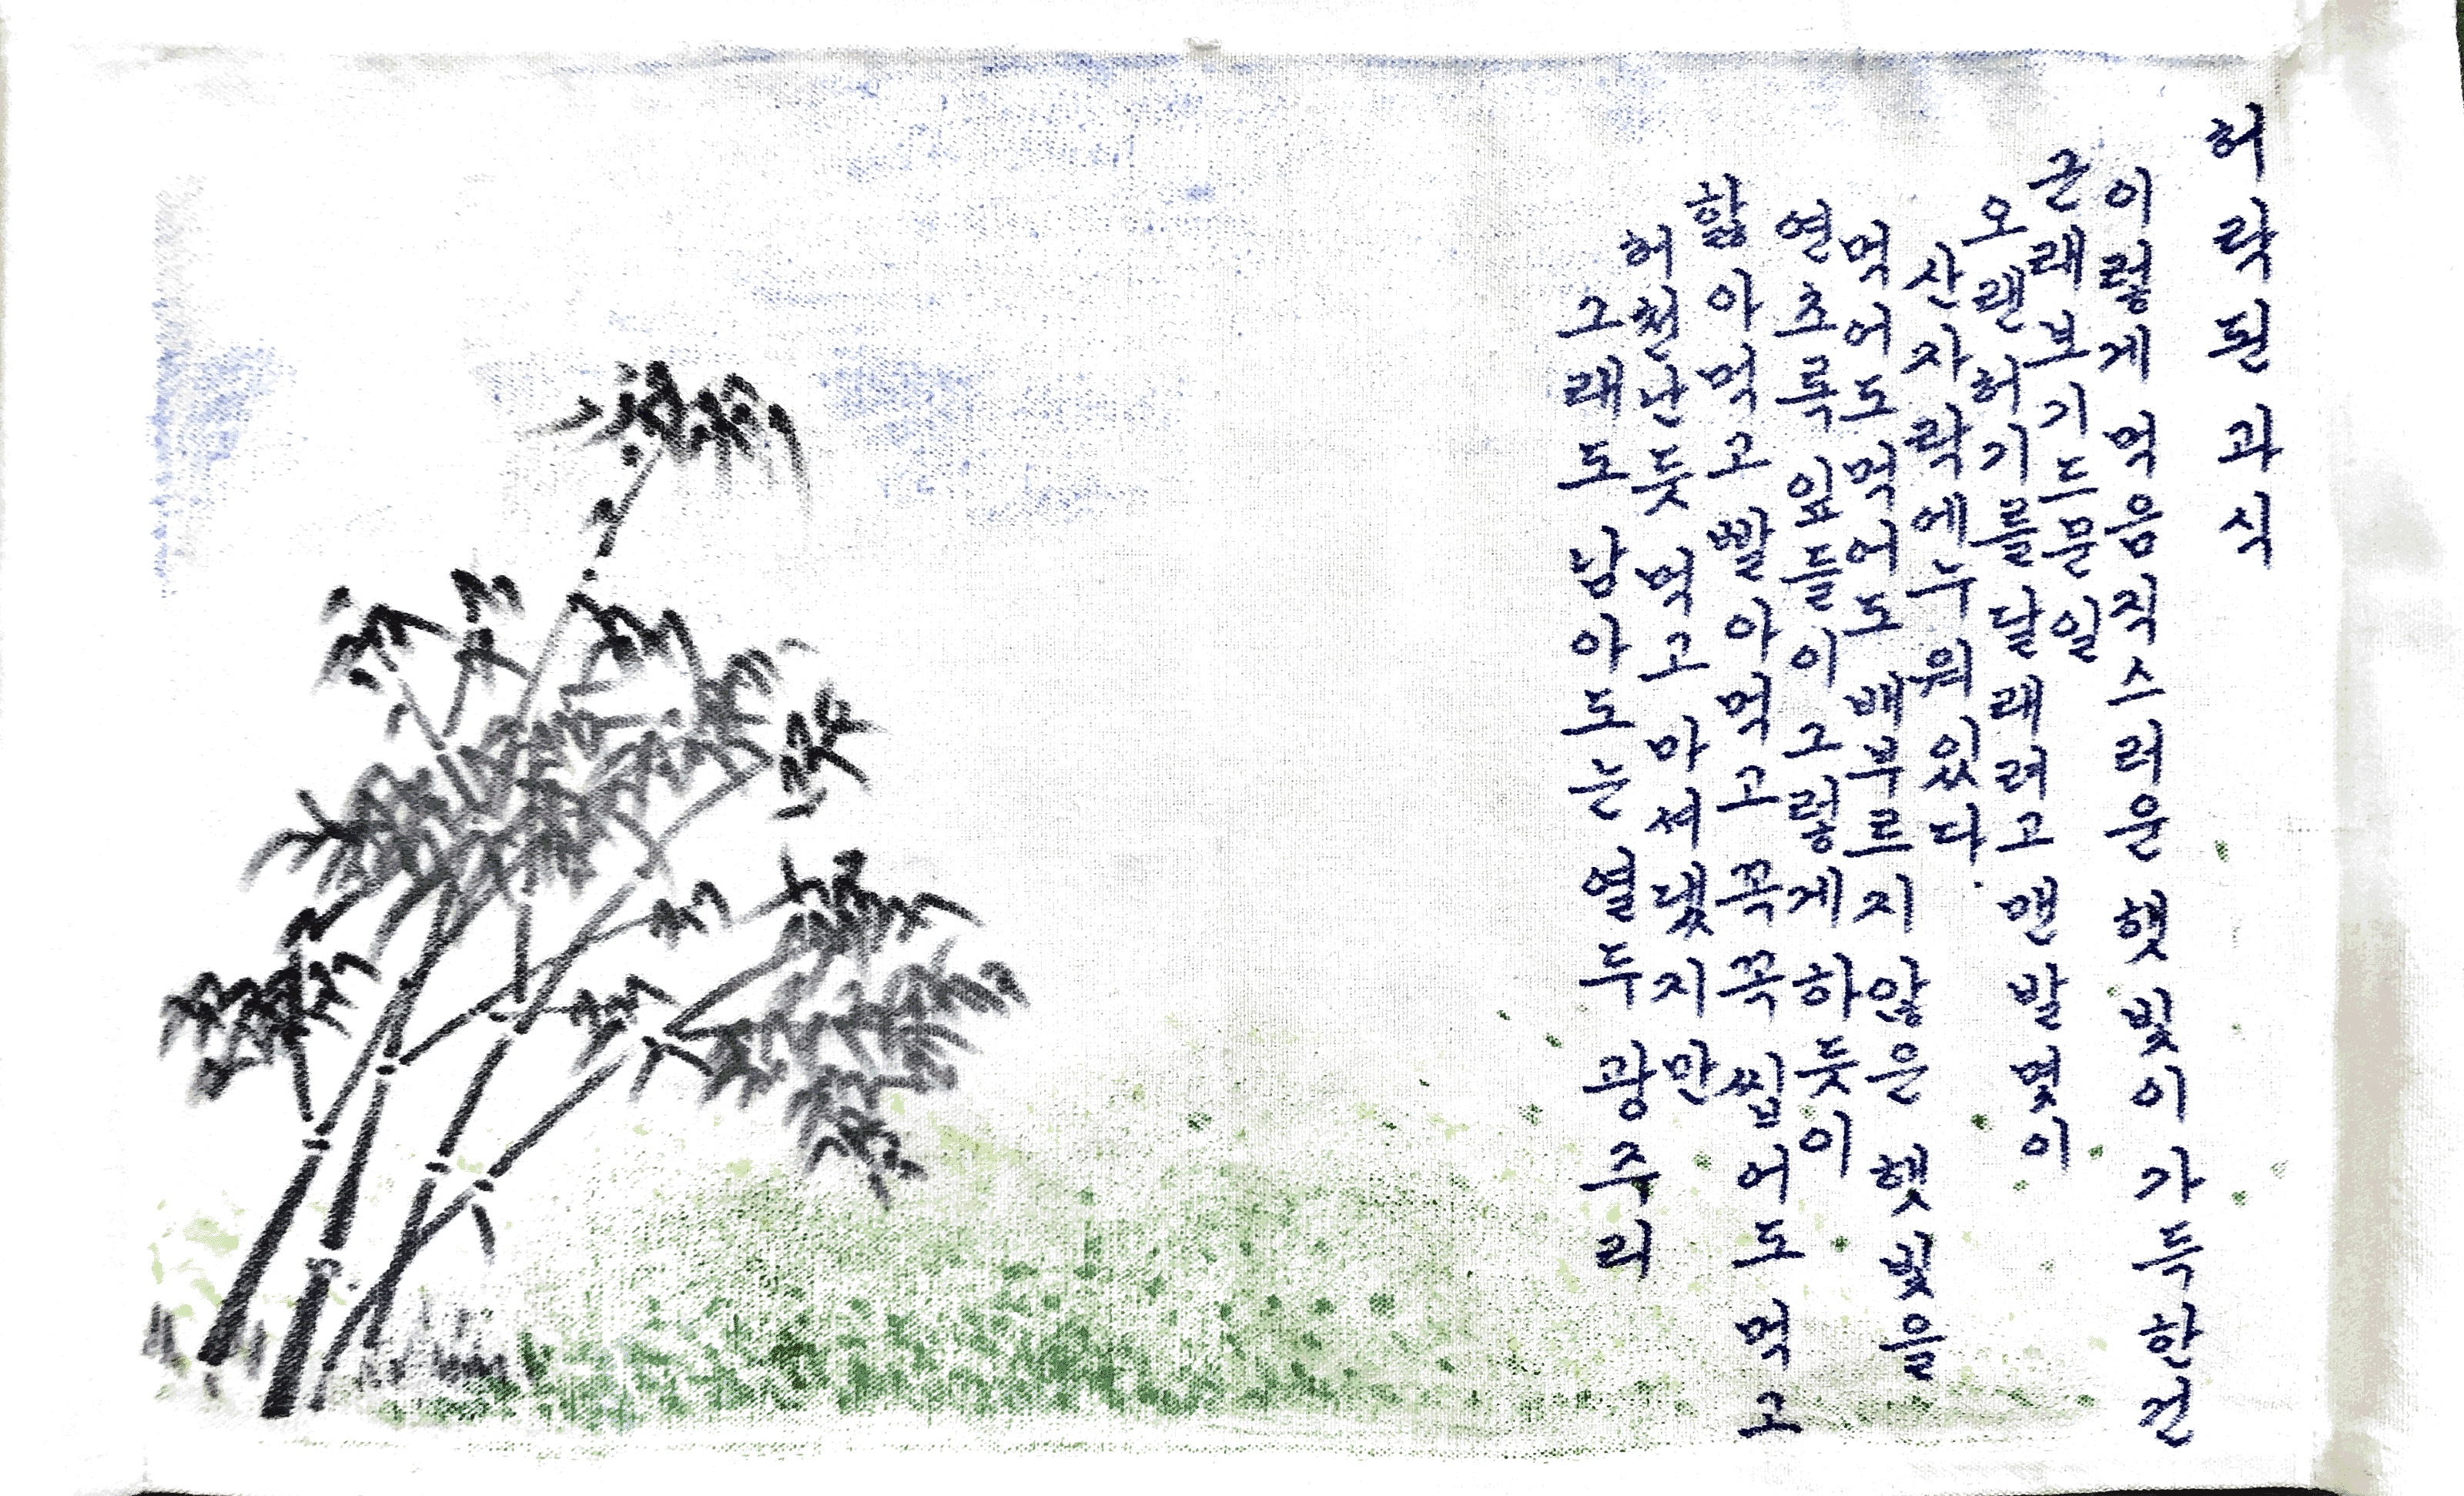 허락된 과식
이렇게 먹음직스러운 햇빛이 가득한 건
근래 보기 드문 일
오랜 허기를 달래려고 맨발 몇이
산자락에 누워 있다.
먹어도 먹어도 배부르지 않은 햇빛을
연초록 잎들이 그렇게 하듯이
핥아먹고 빨아먹고 꼭꼭 씹어도 먹고
허천난 듯 먹고 마셔댔지만
그래도 남아도는 열두 광주리